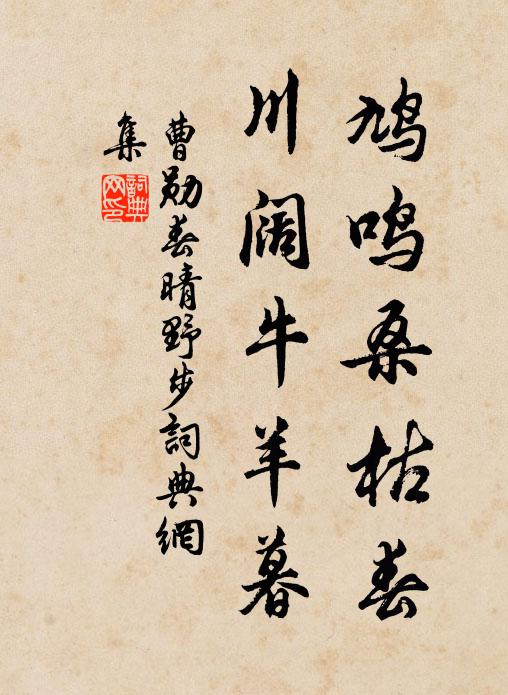 鸠鸣桑枯春
川阔牛羊暮
曹勋春晴野步詞典網
集
詞典
网印